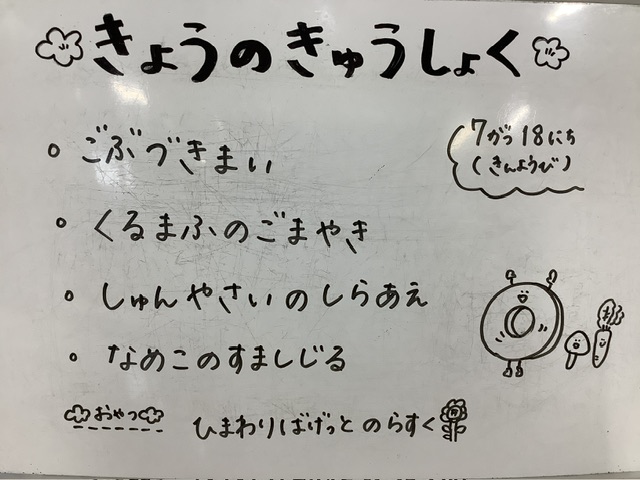 きょうのきゅうしょく
7がつ18にち
(きんようび)
。ごぶづきまい
。くるまふのごまやき
。しゅんやさいのしらあえ
。なめこのすましじる
おやつ
ひまわりばげっとのらすく